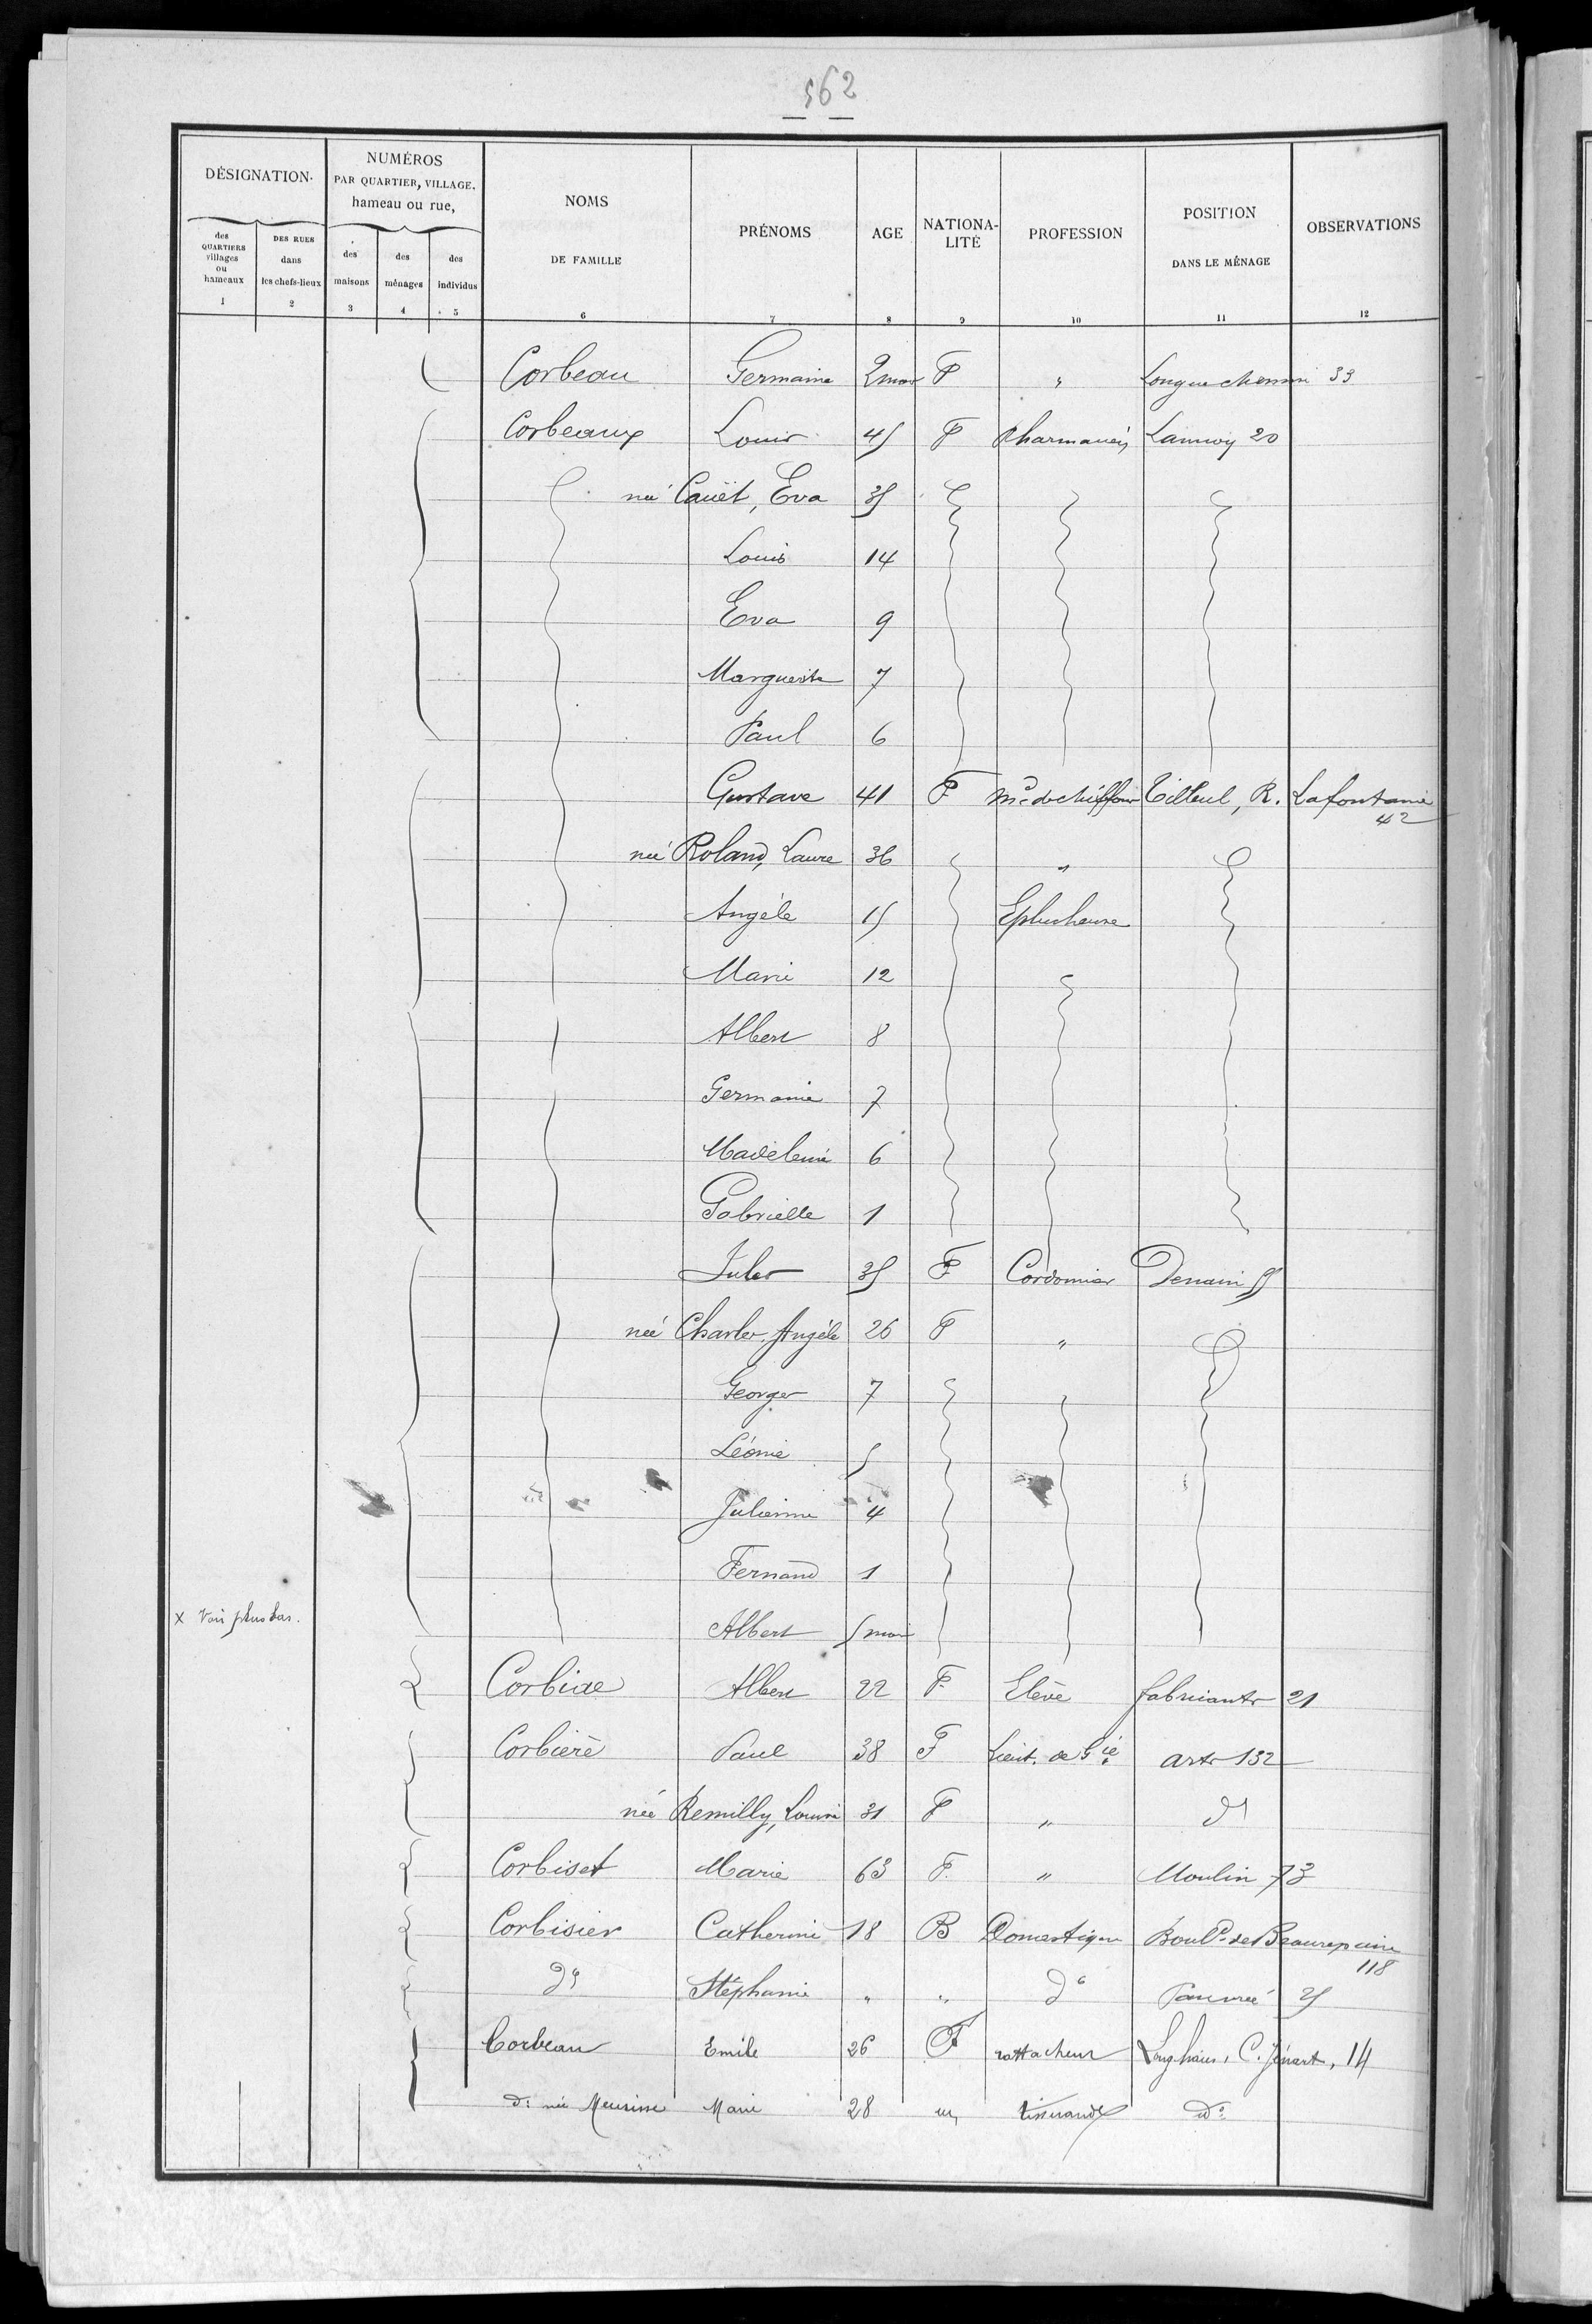 562
DÉSIGNATION. NUMÉROS PAR QUARTIER, VILLAGE, hameau ou rue, NOMS DE FAMILLE PRÉNOMS AGE NATIONA-LITÉ PROFESSION POSITION DANS LE MÉNAGE OBSERVATIONS
des QUARTIERS villages ou hameaux DES RUES dans les chefs-lieux des maisons des ménages des individus
1 2 3 4 5 6 7 8 9 10 11 12
Corbeau Germaine 2 mois F " Longue chemin 33
Corbeaux Louis 45 F Pharmacien Lannoy 20
née Cauët, Eva 35
Louis 14
Eva 9
Marguerite 7
Paul 6
Gustave 41 F Md de chiffons Tilleul, R. Lafontaine 42
née Roland, Laure 36 "
Angèle 15 Eplucheuse
Marie 12
Albert 8
Germaine 7
Madeleine 6
Gabrielle 1
Jules 35 F Cordonnier Denain 55
née Charles Angèle 26 F "
Georges 7
Léonie 5
Julienne 4
Fernand 1
x Voir plus bas.
Albert 5 mois
Corbiae Albert 22 F. Elève fabricants 21
Corbière Paul 38 F Lieut. de Gie arts 132
née Remilly, Louise 31 F " do
Corbiset Marie 63 F. " Moulin 73
Corbisier Catherine 18 B Domestique Bould de Beaurepaire 118
do Stéphanie " " do Pauvrée 25
Corbeau Emile 26 F rattacheur Longhaies, C. Jénart, 14
d: née Meurisse Marie 28 tisserande do